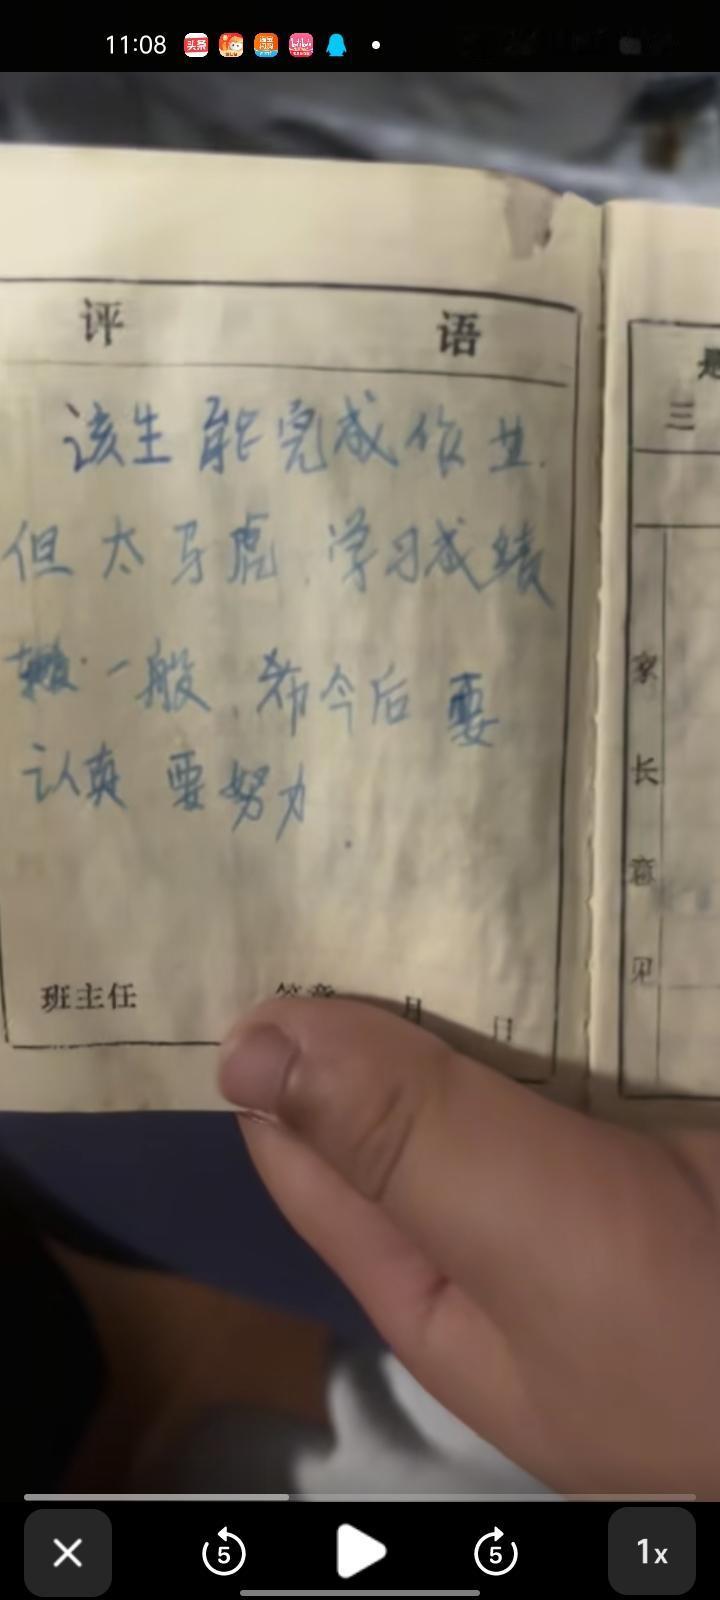 11:08
评 语
该生能完成作业.
但太马虎.学习成绩
一般.希今后要
认真 要努力.
班主任 签章 月 日
是
三
家
长
意
见
5
5
1x